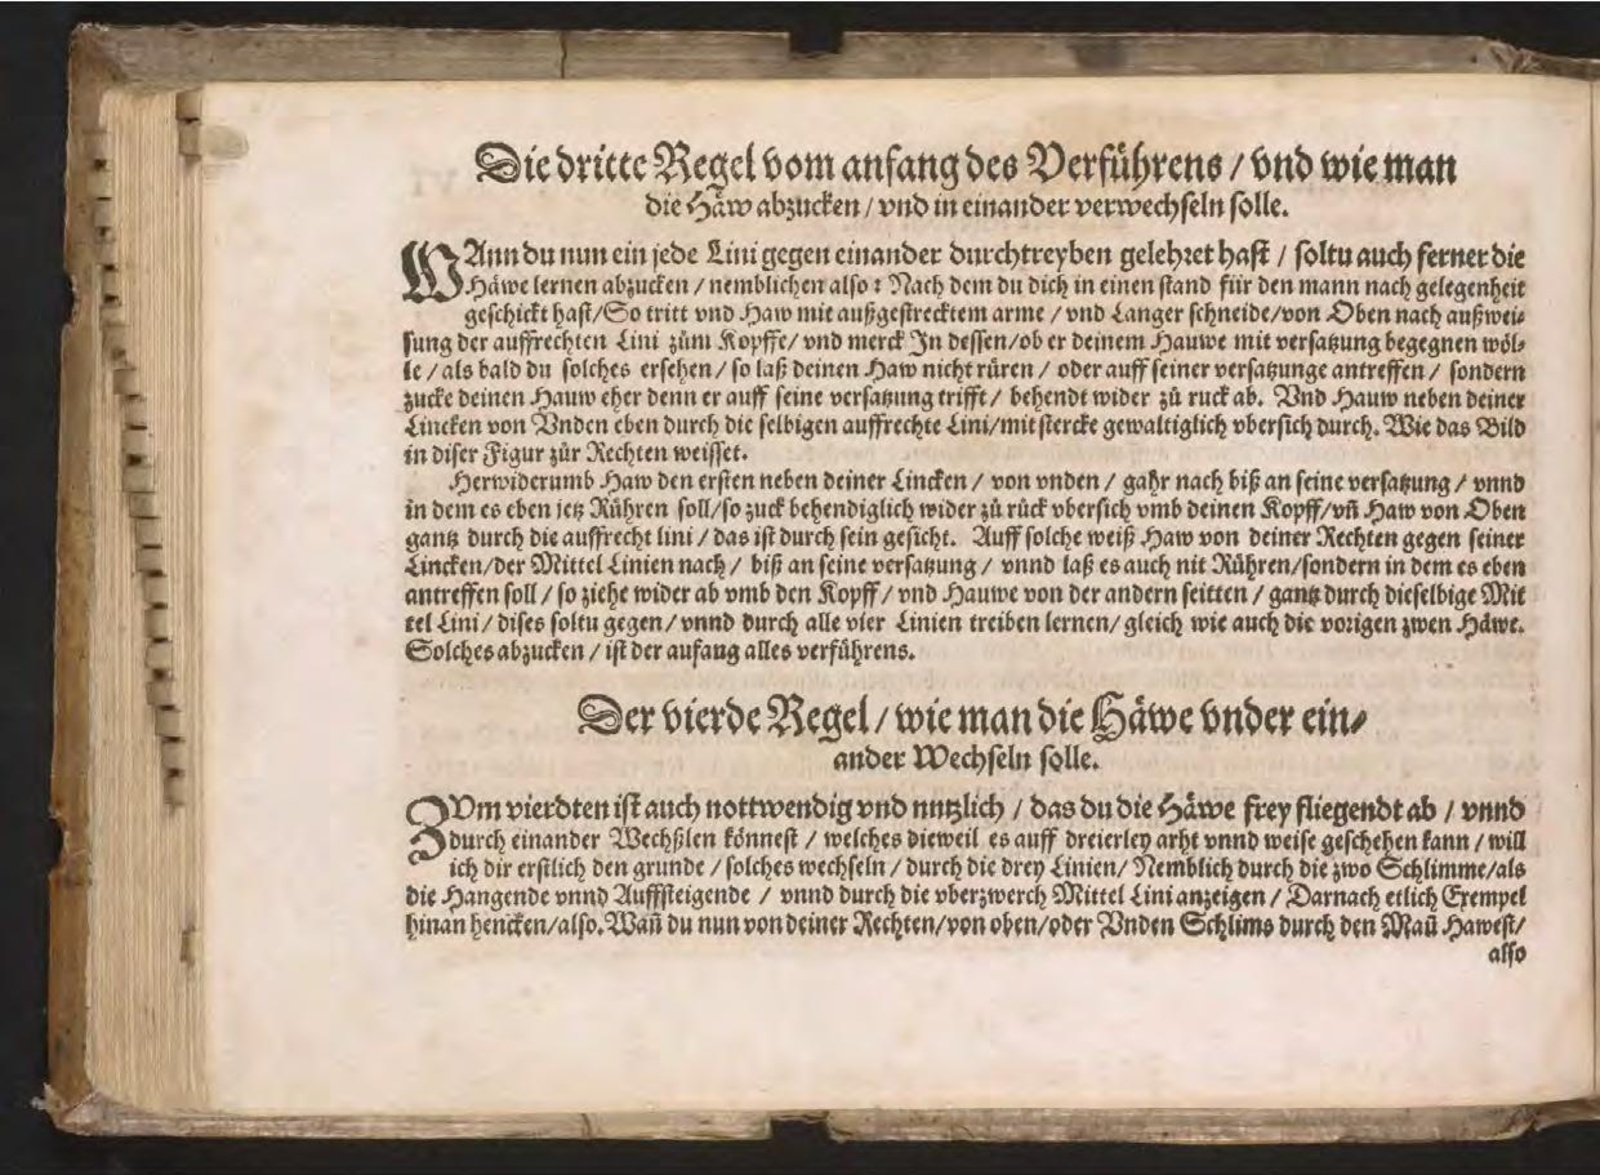 Die dritte Regel vom anfang des Verführens / vnd wie man
die Häw abzucken / vnd in einander verwechseln solle.
WAnn du nun ein jede Lini gegen einander durchtreyben gelehret hast / soltu auch ferner die
Häwe lernen abzucken / nemblichen also: Nach dem du dich in einen stand für den mann nach gelegenheit
geschickt hast/So tritt vnd Haw mit außgestrecktem arme / vnd Langer schneide/von Oben nach außwei-
sung der auffrechten Lini zům Kopffe/ vnd merck In dessen/ob er deinem Hauwe mit versatzung begegnen wöl-
le / als bald du solches ersehen / so laß deinen Haw nicht rüren / oder auff seiner versatzunge antreffen / sondern
zucke deinen Hauw eher denn er auff seine versatzung trifft / behendt wider zů ruck ab. Vnd Hauw neben deiner
Lincken von Vnden eben durch die selbigen auffrechte Lini/mit stercke gewaltiglich vbersich durch. Wie das Bild
in diser Figur zůr Rechten weisset.
Herwiderumb Haw den ersten neben deiner Lincken / von vnden / gahr nach biß an seine versatzung / vnnd
in dem es eben jetz Rühren soll/so zuck behendiglich wider zů rück vbersich vmb deinen Kopff/vñ Haw von Oben
gantz durch die auffrecht lini / das ist durch sein gesicht. Auff solche weiß Haw von deiner Rechten gegen seiner
Lincken/der Mittel Linien nach / biß an seine versatzung / vnnd laß es auch nit Rühren/sondern in dem es eben
antreffen soll / so ziehe wider ab vmb den Kopff / vnd Hauwe von der andern seitten / gantz durch dieselbige Mit
tel Lini / dises soltu gegen / vnnd durch alle vier Linien treiben lernen/ gleich wie auch die vorigen zwen Häwe.
Solches abzucken / ist der aufang alles verführens.
Der vierde Regel / wie man die Häwe vnder ein-
ander Wechseln solle.
ZVm vierdten ist auch nottwendig vnd nutzlich / das du die Häwe frey fliegendt ab / vnnd
durch einander Wechßlen könnest / welches dieweil es auff dreierley arht vnnd weise geschehen kann / will
ich dir erstlich den grunde / solches wechseln / durch die drey Linien/ Nemblich durch die zwo Schlimme/als
die Hangende vnnd Auffsteigende / vnnd durch die vberzwerch Mittel Lini anzeigen / Darnach etlich Exempel
hinan hencken/also. Wañ du nun von deiner Rechten/von oben/oder Vnden Schlims durch den Mañ Hawest/
also